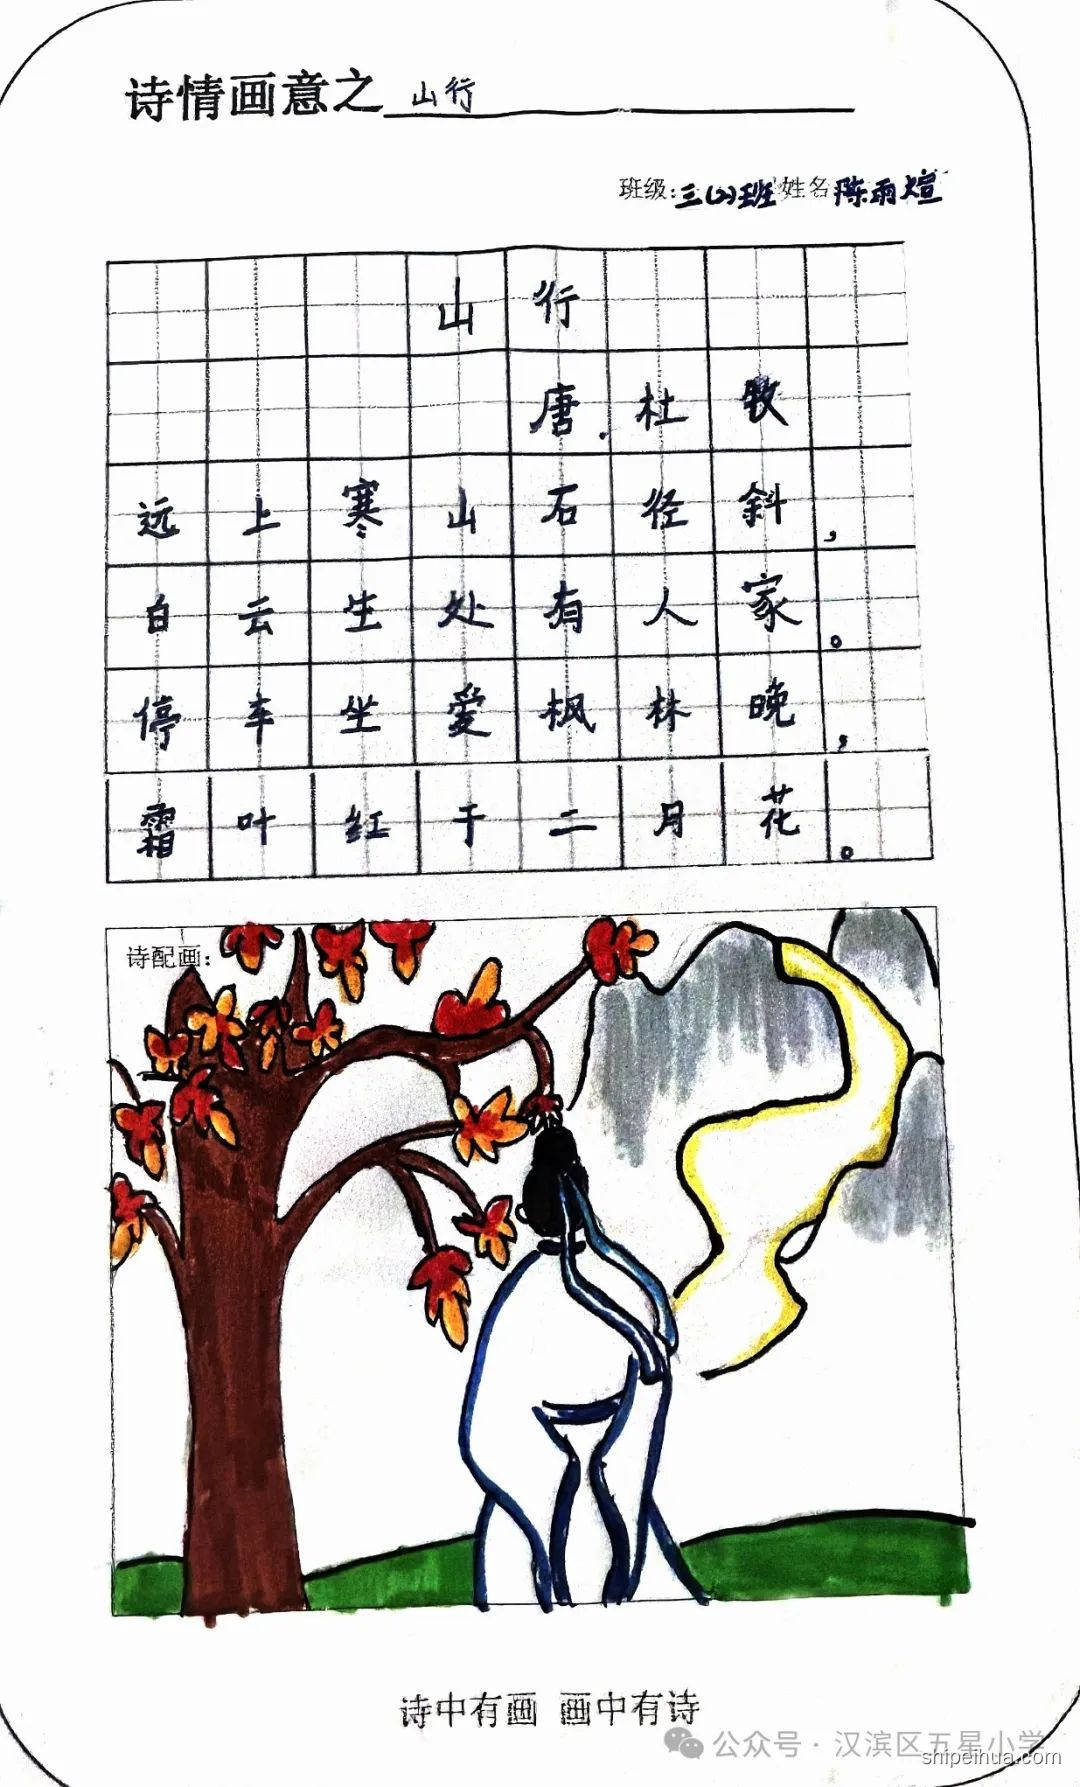 诗情画意之 山行
班级:三(2)班 姓名 陈雨煊
山行
唐.杜牧
远上寒山石径斜,
白云生处有人家。
停车坐爱枫林晚,
霜叶红于二月花。
诗配画:
诗中有画 画中有诗
公众号·汉滨区五星小学
shipeihua.com